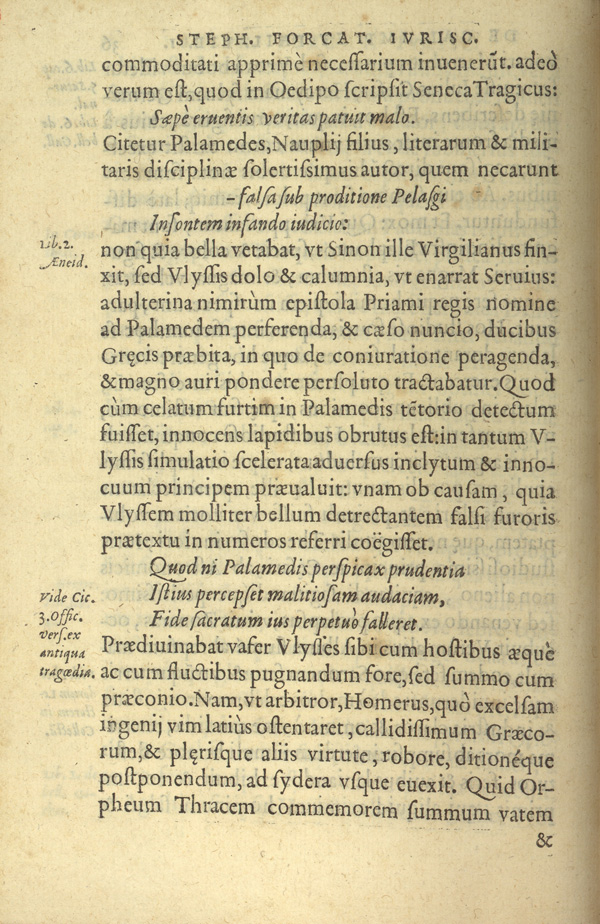 STEPH. FORCAT. IVRISC.
commoditati apprimè neceſſarium inuenerūt. adeò
verum eſt, quod in Oedipo ſcripſit Seneca Tragicus:
Sæpè eruentis veritas patuit malo.
Citetur Palamedes, Nauplij filius, literarum & mili-
taris diſciplinæ ſolertiſſimus autor, quem necarunt
– falſa ſub proditione Pelaſgi
Inſontem infando iudicio:
Lib. 2.
Æneid.
non quia bella vetabat, vt Sinon ille Virgilianus fin-
xit, ſed Vlyſſis dolo & calumnia, vt enarrat Seruius:
adulterina nimirùm epiſtola Priami regis nomine
ad Palamedem perferenda, & cæſo nuncio, ducibus
Gręcis præbita, in quo de coniuratione peragenda,
& magno auri pondere perſoluto tractabatur. Quod
cùm celatum furtim in Palamedis tētorio detectum
fuiſſet, innocens lapidibus obrutus eſt: in tantum V-
lyſſis ſimulatio ſcelerata aduerſus inclytum & inno-
cuum principem præualuit: vnam ob cauſam, quia
Vlyſſem molliter bellum detrectantem falſi furoris
prætextu in numeros referri coëgiſſet.
Quod ni Palamedis perſpicax prudentia
Vide Cic.
3. Offic.
verſ. ex
antiqua
tragœdia.
Iſtius percepſet malitioſam audaciam,
Fide ſacratum ius perpetuò falleret.
Prædiuinabat vafer Vlyſſes ſibi cum hoſtibus æquè
ac cum fluctibus pugnandum fore, ſed ſummo cum
præconio. Nam, vt arbitror, Homerus, quò excelſam
ingenij vim latiùs oſtentaret, callidiſſimum Græco-
rum, & plęriſque aliis virtute, robore, ditionéque
poſtponendum, ad ſydera vſque euexit. Quid Or-
pheum Thracem commemorem ſummum vatem
&